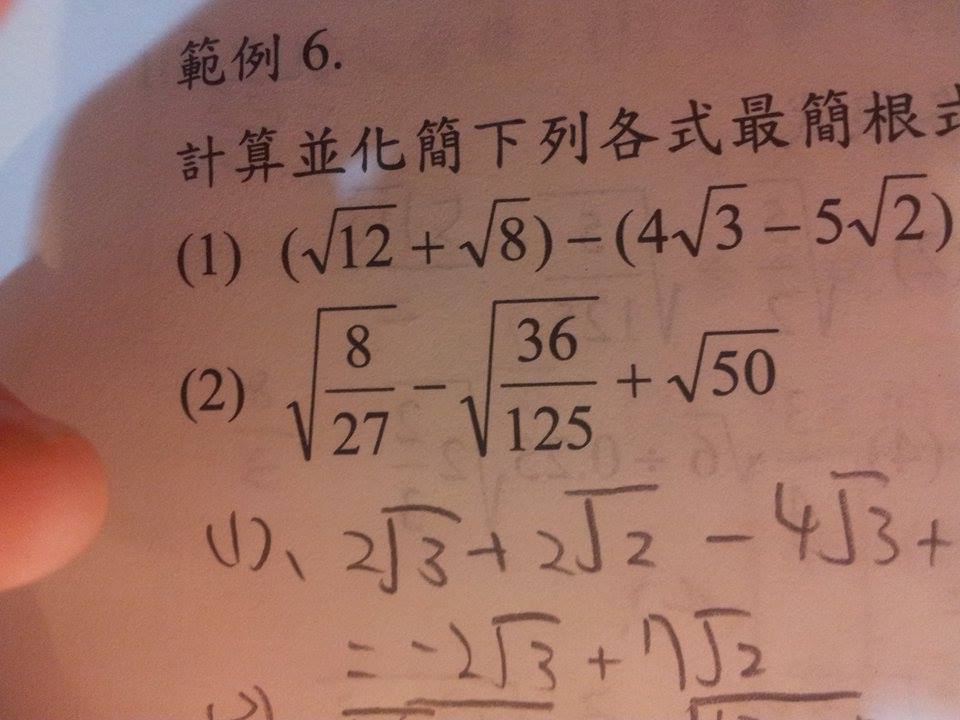 範例 6.
計算並化簡下列各式最簡根式
(1) (√12 + √8) − (4√3 − 5√2)
(2) √(8/27) − √(36/125) + √50
(1)、2√3 + 2√2 − 4√3 +
= −2√3 + 7√2